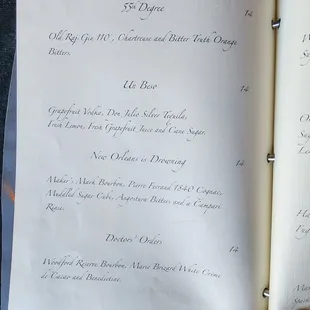 55th Degree 14
Old Raj Gin 110°, Chartreuse and Bitter Truth Orange
Bitters.
Un Beso 14
Grapefruit Vodka, Don Julio Silver Tequila,
Fresh Lemon, Fresh Grapefruit Juice and Cane Sugar.
New Orleans is Drowning 14
Maker's Mark Bourbon, Pierre Ferrand 1840 Cognac,
Muddled Sugar Cube, Angostura Bitters and a Campari
Rinse.
Doctors' Orders 14
Woodford Reserve Bourbon, Marie Brizard White Crème
de Cacao and Benedictine.